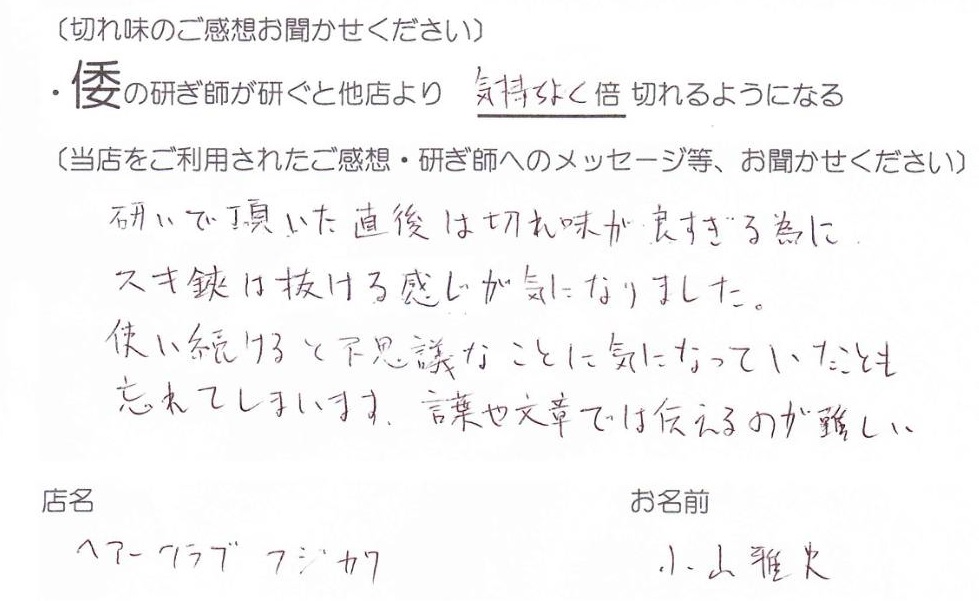 （切れ味のご感想お聞かせください）
・倭の研ぎ師が研ぐと他店より 気持ちよく倍 切れるようになる
（当店をご利用されたご感想・研ぎ師へのメッセージ等、お聞かせください）
研いで頂いた直後は切れ味が良すぎる為に
スキ鋏は抜ける感じが気になりました。
使い続けると不思議なことに気になっていたことも
忘れてしまいます。言葉や文章では伝えるのが難しい
店名 お名前
ヘアークラブ フジカワ 小山雅史